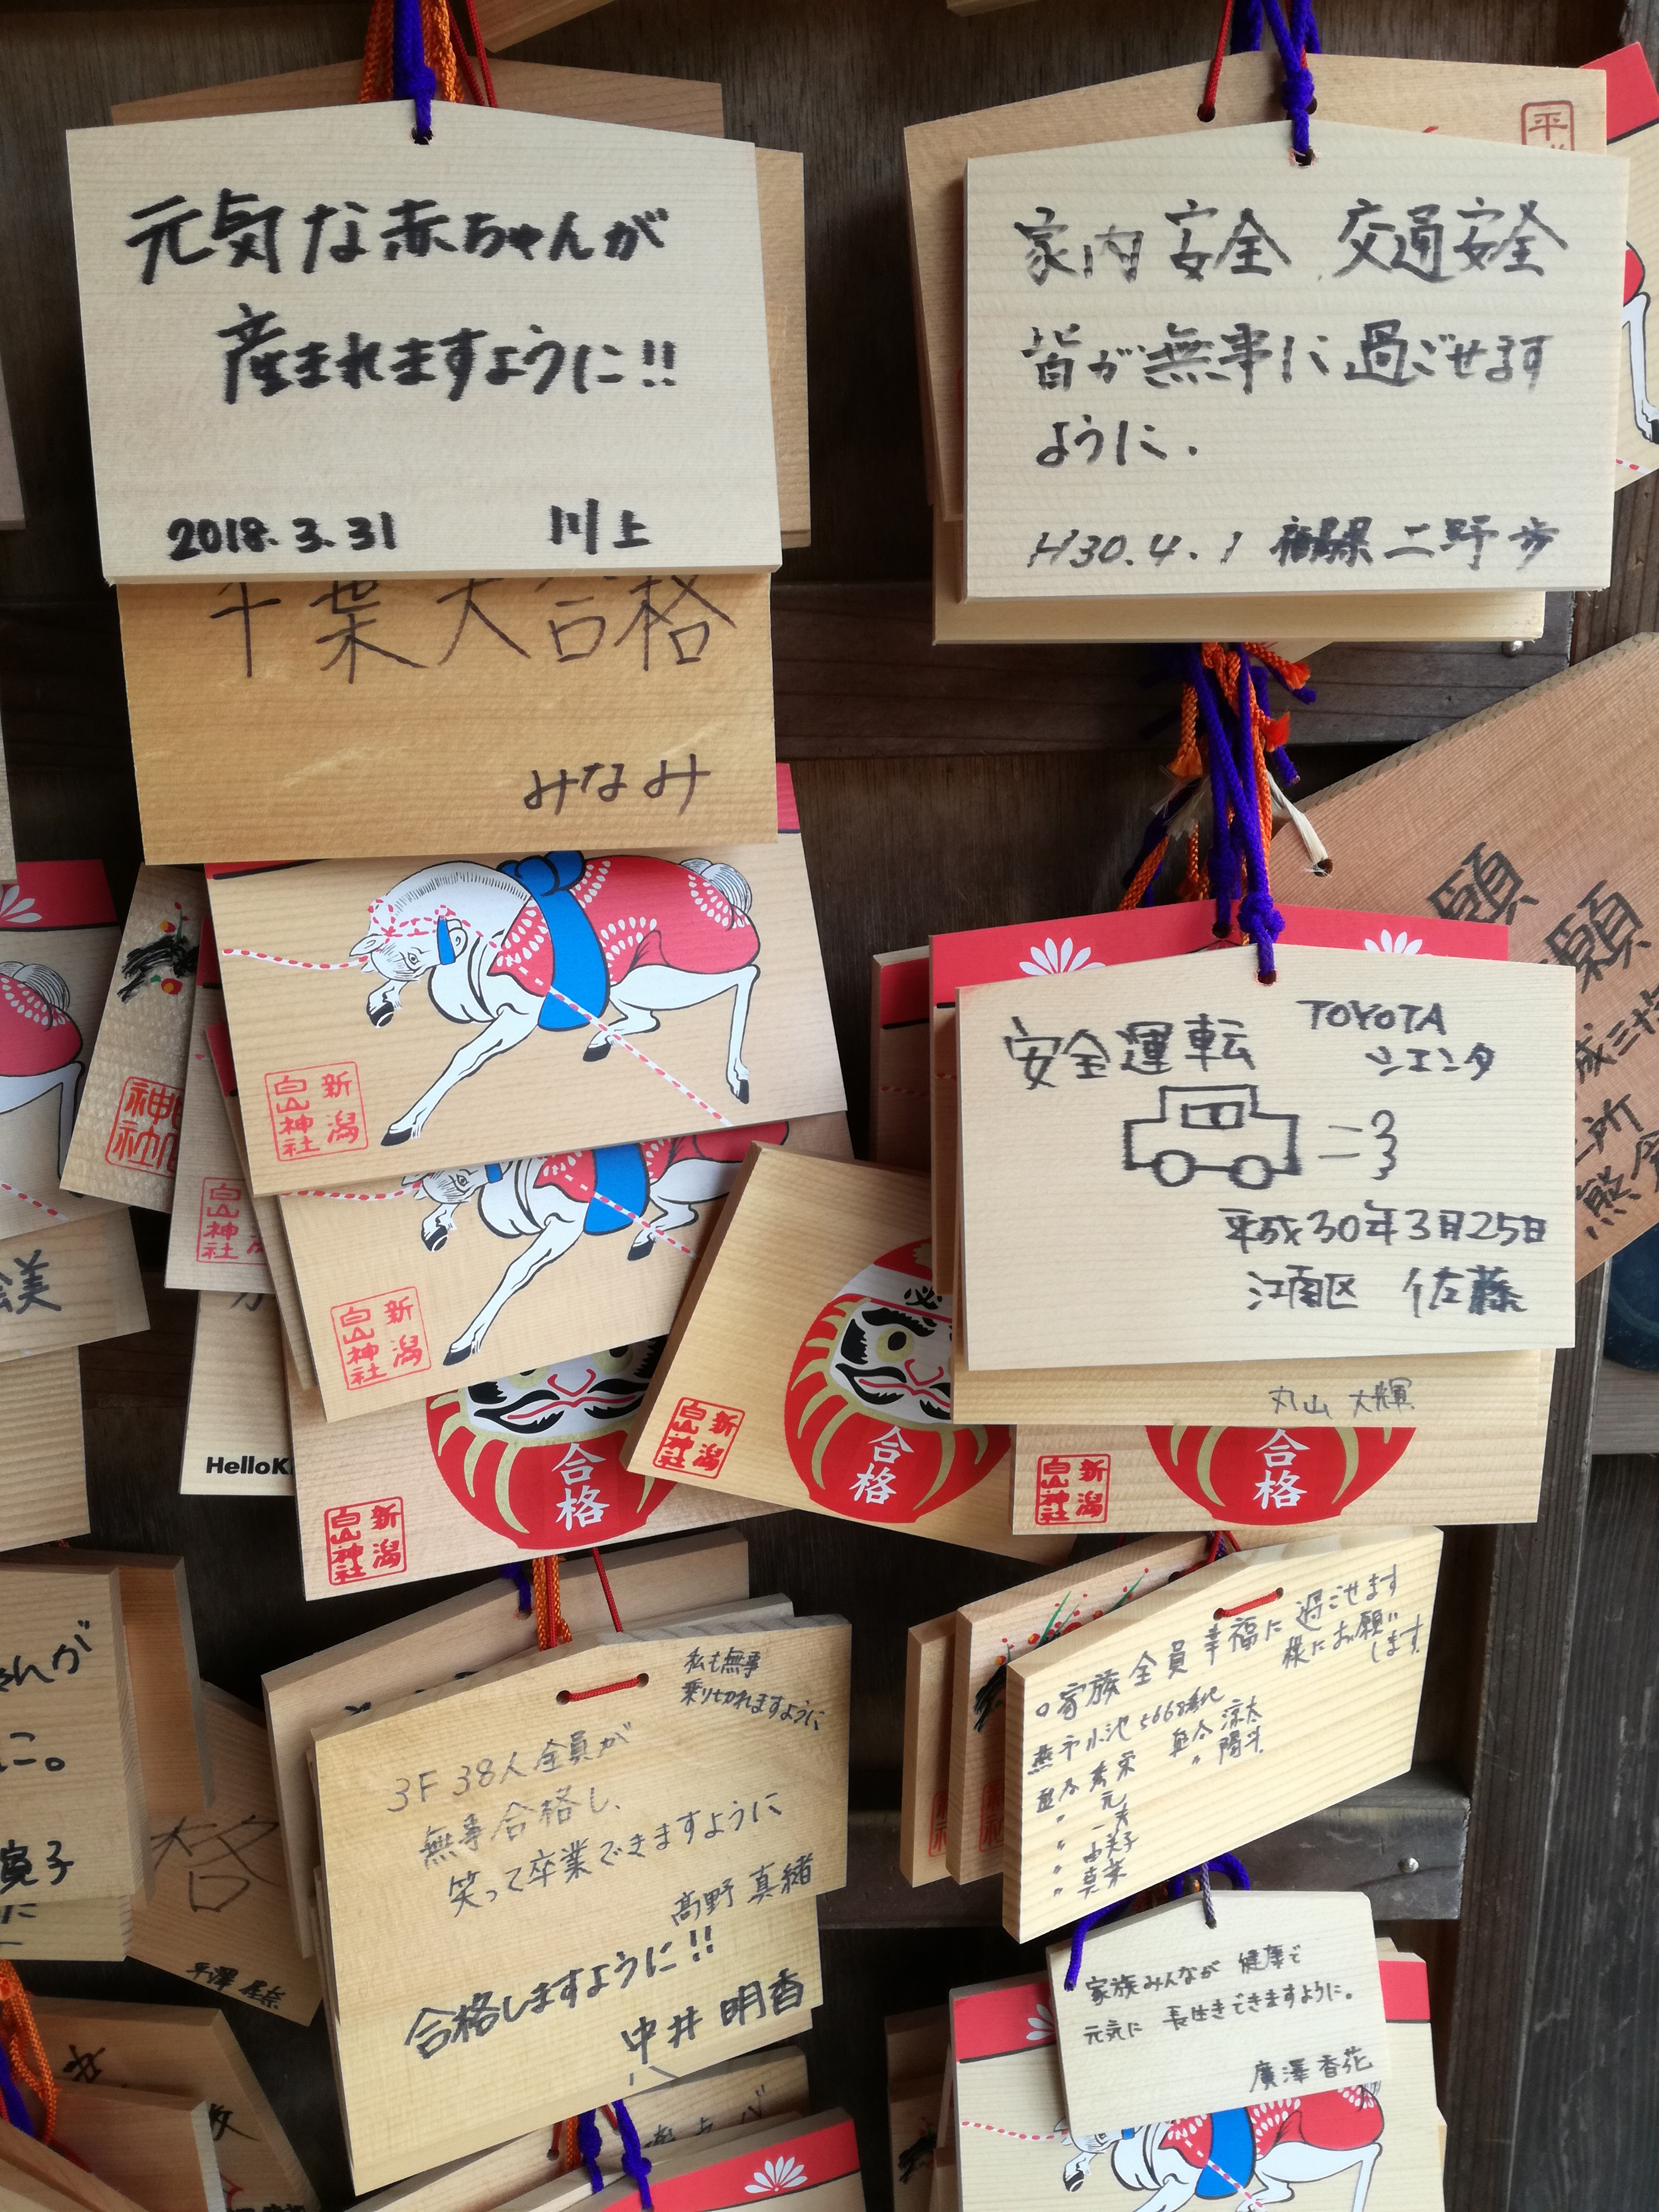 元気な赤ちゃんが
産まれますように!!
2018.3.31 川上
平
家内安全 交通安全
皆が無事に過ごせます
ように.
H30.4.1 二野 歩
千葉大合格
みなみ
新潟
白山神社
新潟
白山神社
合格
新潟
白山神社
HelloK
願
安全運転 TOYOTA
シエンタ
平成30年3月25日
江南区 佐藤
丸山 大輝
必
合格
新潟
白山神社
合格
新潟
白山神社
神社
美
私も無事
乗り切れますように
3F 38人全員が
無事合格し、
笑って卒業できますように
髙野 真緒
合格しますように!!
中井 明香
家族全員幸福に過ごせます
様にお願い
します
燕市小池5668番地
涼太
陽斗
元
家族みんなが 健康で
元気に 長生きできますように。
廣澤 香花
格